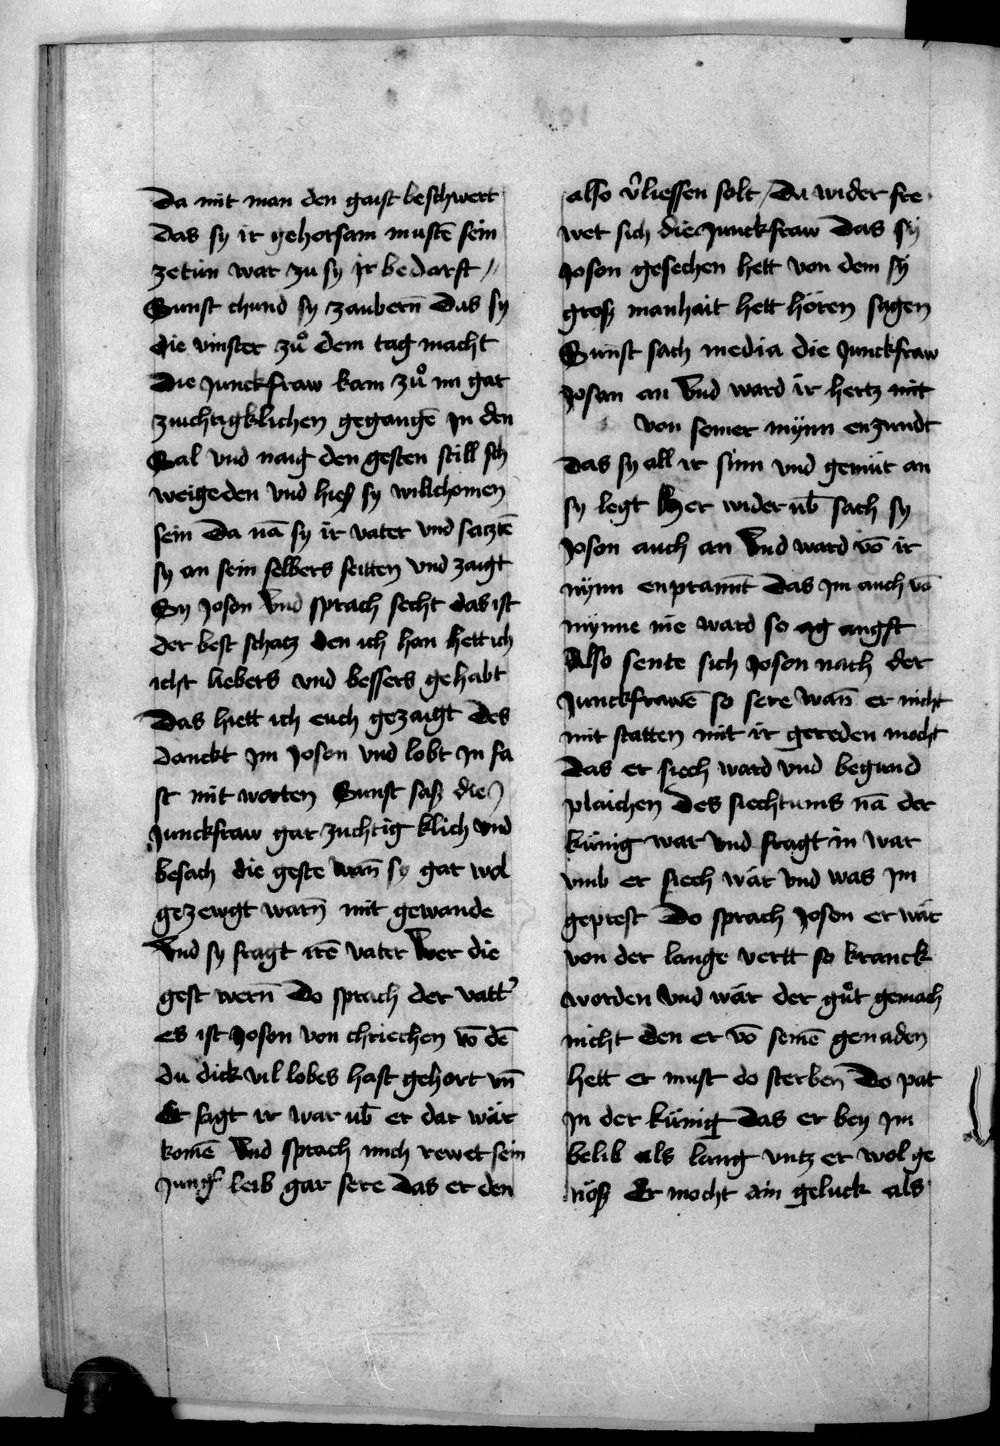 Da mit man den gaist beschwert
das sy ir gehorsam mustē sein
zetün war zu sy ir bedorft //
Sunst chund sy zaubern̄ Das sy
die vinster zů dem tag macht
Die Junckfraw kam zů im gar
zuichtigklichen gegangē In den
Sal vnd naig den gesten still sch
weigeden vnd hieß sy willchomen
sein Da nā sy ir vater vnd satztē
sy an sein selbers seitten vnd zaigt
Sy Joson Vnd sprach secht das ist
der best schatz den ich han hett ich
icht liebers vnd bessers gehabt
Das hiett ich euch gezaigt Des
danckt Im Joson vnd lobt In fa
st mit worten Sunst saß die
Junckfraw gar zuchtig klich vnd
besach die geste wan̄ sy gar wol
gezewgt warn̄ mit gewande
Vnd sy fragt irē vater Wer die
gest wern̄ Do sprach der vatt᾽
es ist Joson von chriechen vō dē
du dick vil lobes hast gehort vn̄
Er sagt ir war ub̄ er dar wär
komē Vnd sprach mich rewet sein
Jung᾽ leib gar sere Das er den
also v᾽liessen solt / Da wider fre
wet sich die Junckfraw Das sy
Joson gesechen hett von dem sy
groß manhait hett hören sagen
Sunst sach media die Junckfraw
Joson an Vnd ward ir hertz mit
von seiner mÿnn enzundt
Das sy all ir sinn vnd gemüt an
sy legt Her wider ub̄ sach sy
Joson auch an Vnd ward vō ir
mÿnn enprannt Das Im auch vō
mÿnne nie ward so angst
Also sente sich Joson nach der
Junckfrawē so sere wan̄ er nicht
mit statten mit ir gereden mocht
Das er siech ward vnd begund
plaichen Des siechtums nā der
künig war Vnd fragt in war
vmb er siech wär vnd was Im
geprest Do sprach Joson er wär
von der lange vertt so kranck
worden Vnd wär der gůt gemach
nicht den er vō seinē genaden
hett er must do sterben̄ Do pat
In der künig Das er bey Im
belib als lang vntz er wol ge
nöß Er mocht ain geluck als